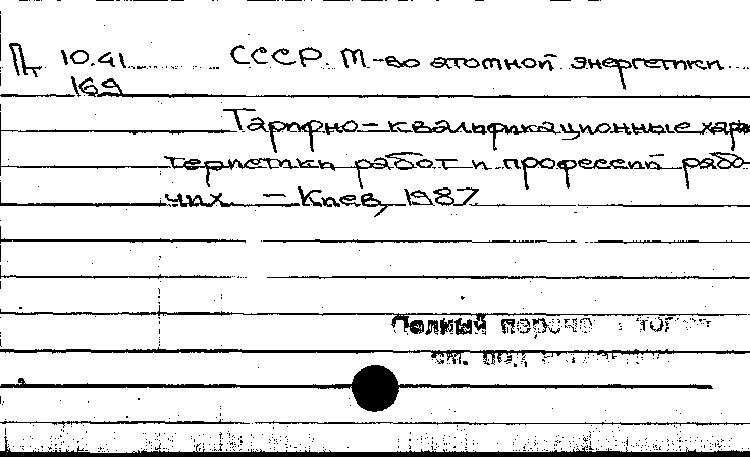 Д 10.41 СССР. М-во атомной энергетики
169
Тарифно-квалификационные харак
теристики работ и профессий рабо-
чих. – Киев, 1987
Полный перечень
см. под